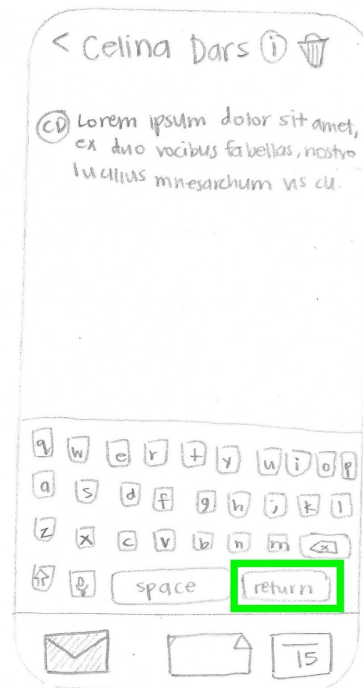 < Celina Dars i
CD Lorem ipsum dolor sit amet,
ex duo vocibus fabellas, nostro
lucilius mnesarchum vis cu.
q w e r t y u i o p
a s d f g h j k l
z x c v b n m x
space return
15